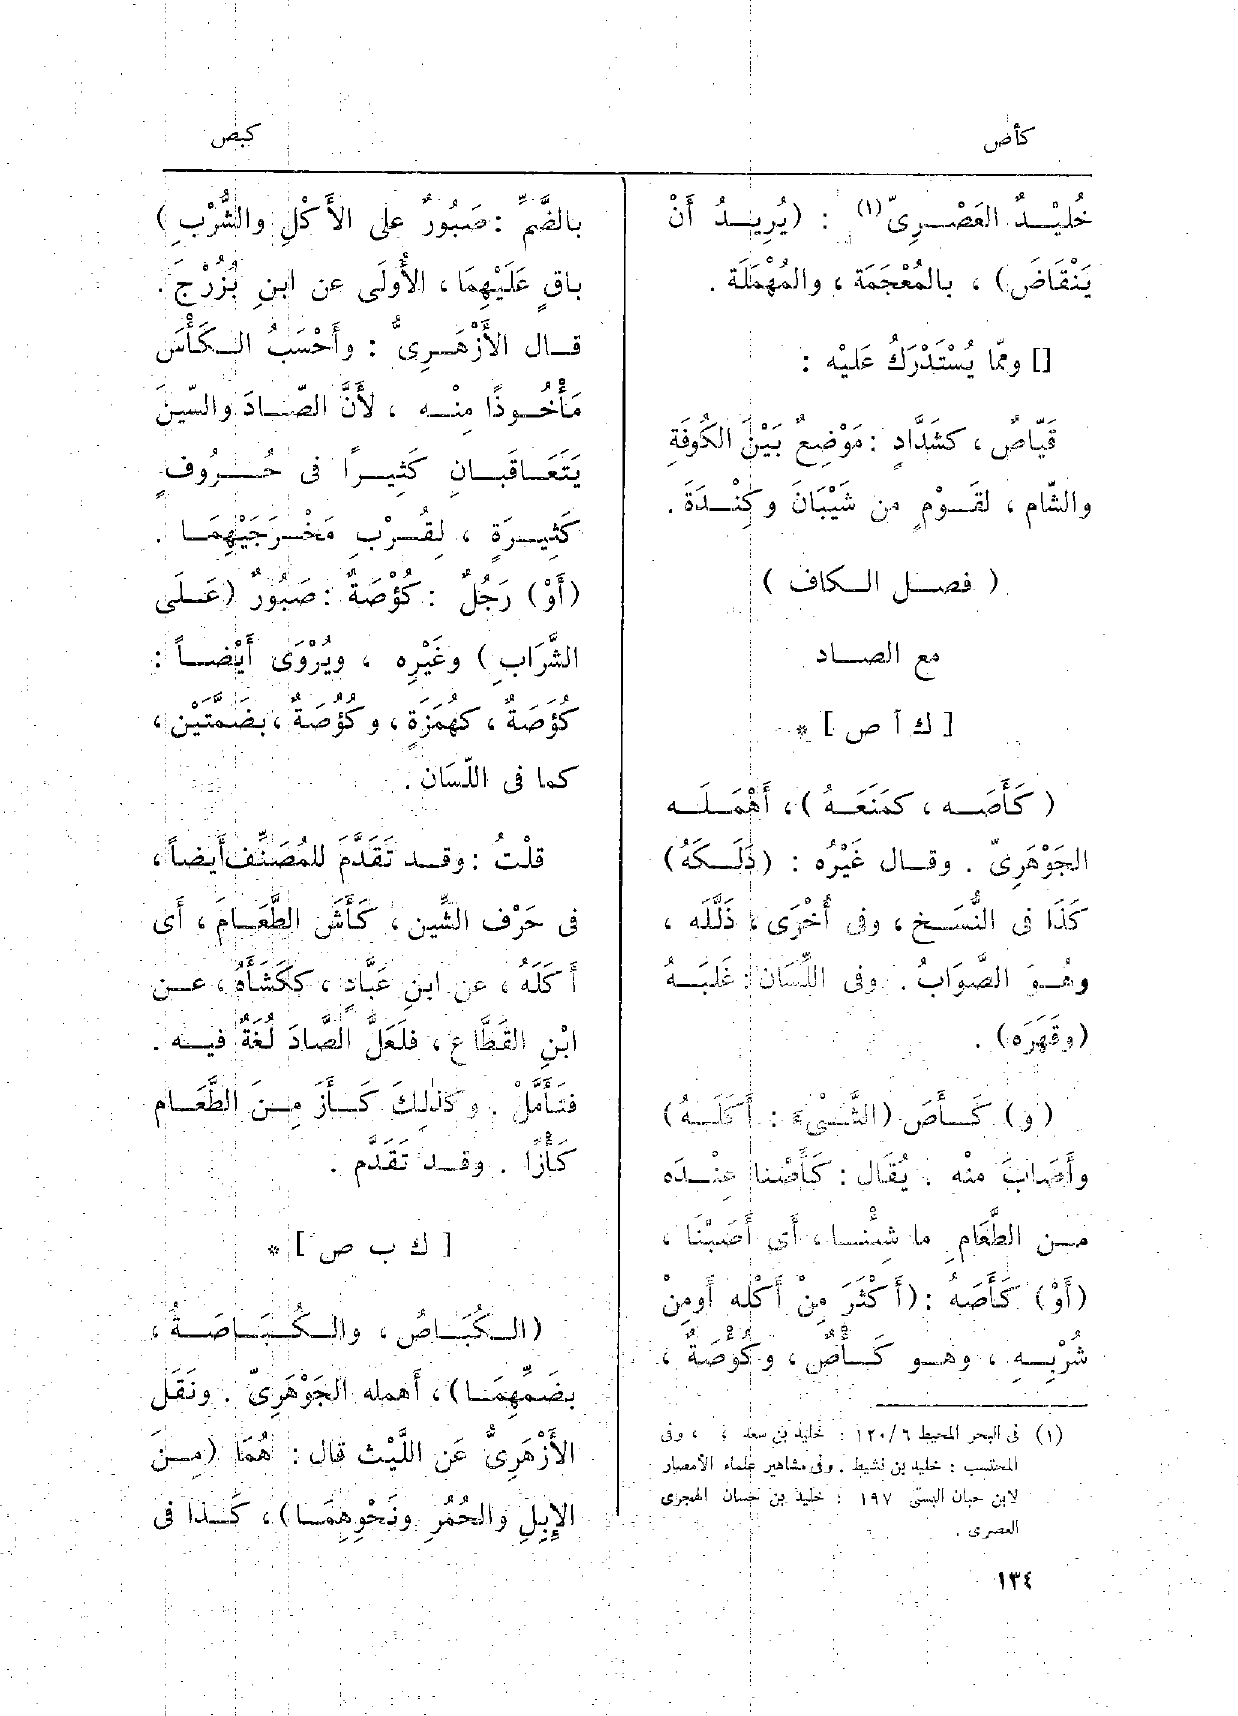 كأص
كبص
خُلَيْدٌ العَصْرِىّ (١) : (يُرِيدُ أَنْ
يَنْقَاضَ) ، بالمُعْجَمَة ، والمُهْمَلَة .
[] وممّا يُسْتَدْرَكُ عَليْه :
قَيّاصٌ ، كشَدَّادٍ : مَوْضِعٌ بَيْنَ الكُوفَةِ
والشّام ، لقَوْمٍ من شَيْبَانَ وكِنْدَةَ .
( فصل الكاف )
مع الصاد
[ ك أ ص ] *
( كَأَصَه ، كمَنَعَهُ ) ، أَهْمَلَه
الجَوْهَرِىّ . وقال غَيْرُه : (ذَلَّكَهُ)
كَذَا فى النُّسَخِ ، وفى أُخْرَى ، ذَلَّلَه ،
وهُوَ الصَّوَابُ . وفى اللِّسَان : غَلَبَهُ
(وقَهَرَه) .
(و) كَأَصَ (الشَّىْءَ : أَكَلَهُ)
وأَصَابَ منْه . يُقَال : كَأَصْنا عِنْدَه
من الطَّعَامِ ما شِئْنا ، أَى أَصَبْنَا ،
(أَوْ) كَأَصَهُ : (أَكْثَرَ مِنْ أَكْلِه أَومِنْ
شُرْبِهِ ، وهو كَأْصٌ ، وكُؤْصَةٌ ،
(١) فى البحر المحيط ١٢٠/٦ : خليد بن سعد ، وفى
المحتسب : خليد بن نشيط . وفى مشاهير علماء الأمصار
لابن حبان البستى ١٩٧ : خليد بن حسان الهجرى
العصرى .
بالضَّمِّ : صَبُورٌ على الأَكْلِ والشُّرْبِ )
باقٍ عَلَيْهِمَا ، الأُولَى عن ابنِ بُزُرْجَ .
قال الأَزْهَرِىُّ : وأَحْسَبُ الكَأْسَ
مَأْخُوذًا مِنْه ، لأَنَّ الصّادَ والسّينَ
يَتَعَاقَبَانِ كَثِيرًا فى حُرُوفٍ
كَثِيرَةٍ ، لِقُرْبِ مَخْرَجَيْهِمَا .
(أَوْ) رَجُلٌ : كُؤْصَةٌ : صَبُورٌ (عَلَى
الشَّرَابِ ) وغَيْرِه ، ويُرْوَى أَيْضاً :
كُؤَصَةٌ ، كهُمَزَةٍ ، وكُؤُصَةٌ ، بضَمَّتَيْن ،
كما فى اللّسَان .
قلْتُ : وقد تَقَدَّمَ للمُصَنِّف أَيضاً ،
فى حَرْف الشِّين ، كَأَشَ الطَّعَامَ ، أَى
أَكَلَهُ ، عن ابنِ عَبَّادٍ ، ككَشَأَهُ ، عن
ابْنِ القَطَّاع ، فلَعَلَّ الصَّادَ لُغَةٌ فيه .
فتَأَمَّلْ . وكذٰلِكَ كَأَزَ مِنَ الطَّعَامِ
كَأْزًا . وقد تَقَدَّم .
[ ك ب ص ] *
(الكُبَاصُ ، والكُبَاصَةُ ،
بضَمِّهِمَا) ، أهمله الجَوْهَرِىّ . ونَقَل
الأَزْهَرِىُّ عَن اللَّيْث قال : هُمَا (مِنَ
الإِبِلِ والحُمُرِ ونَحْوِهِمَا) ، كَذا فى
١٣٤